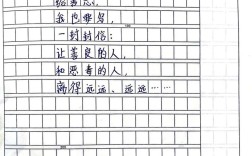 我也
一封封信：
让善良的人，
和恶毒的人，
离得远远、远远……